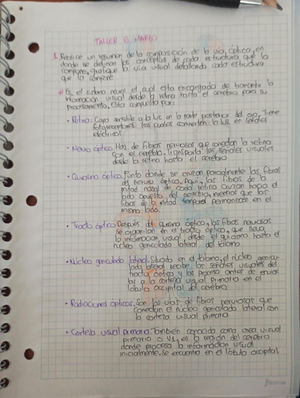 TALLER
1. Realice un resumen de la composición de la vía óptica, en
donde se definan los conceptos de cada estructura que la
compone, la vía visual detallando cada estructura
que la compone
Es el sistema el cual esta encargado de transmitir la
información visual desde la retina hasta el cerebro para su
procesamiento, esta compuesto por:
• Retina: Capa sensible a la luz en la parte posterior del ojo, Tiene
fotorreceptores los cuales convierten la luz en señales
eléctricas.
• Nervio óptico: Haz de fibras nerviosas que conectan la retina
con el cerebro. transporta las señales visuales
desde la retina hasta el cerebro
• Quiasma óptico: Punto donde se cruzan parcialmente las fibras
del nervio óptico, Aquí, las fibras de la
mitad nasal de cada retina cruzan hacia el
lado opuesto del cerebro, mientras que las
fibras de la mitad temporal permanecen en el
mismo lado.
• Tracto óptico: Después del quiasma óptico, las fibras nerviosas
se organizan en el tracto óptico, que lleva
la información visual desde el quiasma hasta el
núcleo geniculado lateral del tálamo.
• Núcleo geniculado lateral: Situado en el tálamo, el núcleo genicu-
lado lateral recibe las señales visuales del
tracto óptico y las procesa antes de enviar
las a la corteza visual primaria en el
lóbulo occipital del cerebro
• Radiaciones ópticas: Son las vías de fibras nerviosas que
conectan el núcleo geniculado lateral con
la corteza visual primaria.
• Corteza visual primaria: También conocida como área visual
primaria o V1, es la región del cerebro
donde procesa la información visual
inicialmente. Se encuentra en el lóbulo occipital